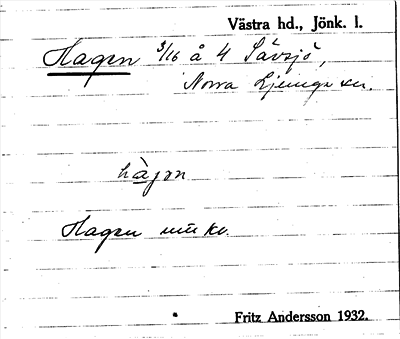 Västra hd., Jönk. l.
Hagen 3/16 å 4 Sävsjö,
Norra Ljunga sn.
hàgen
Hagen
Fritz Andersson 1932.